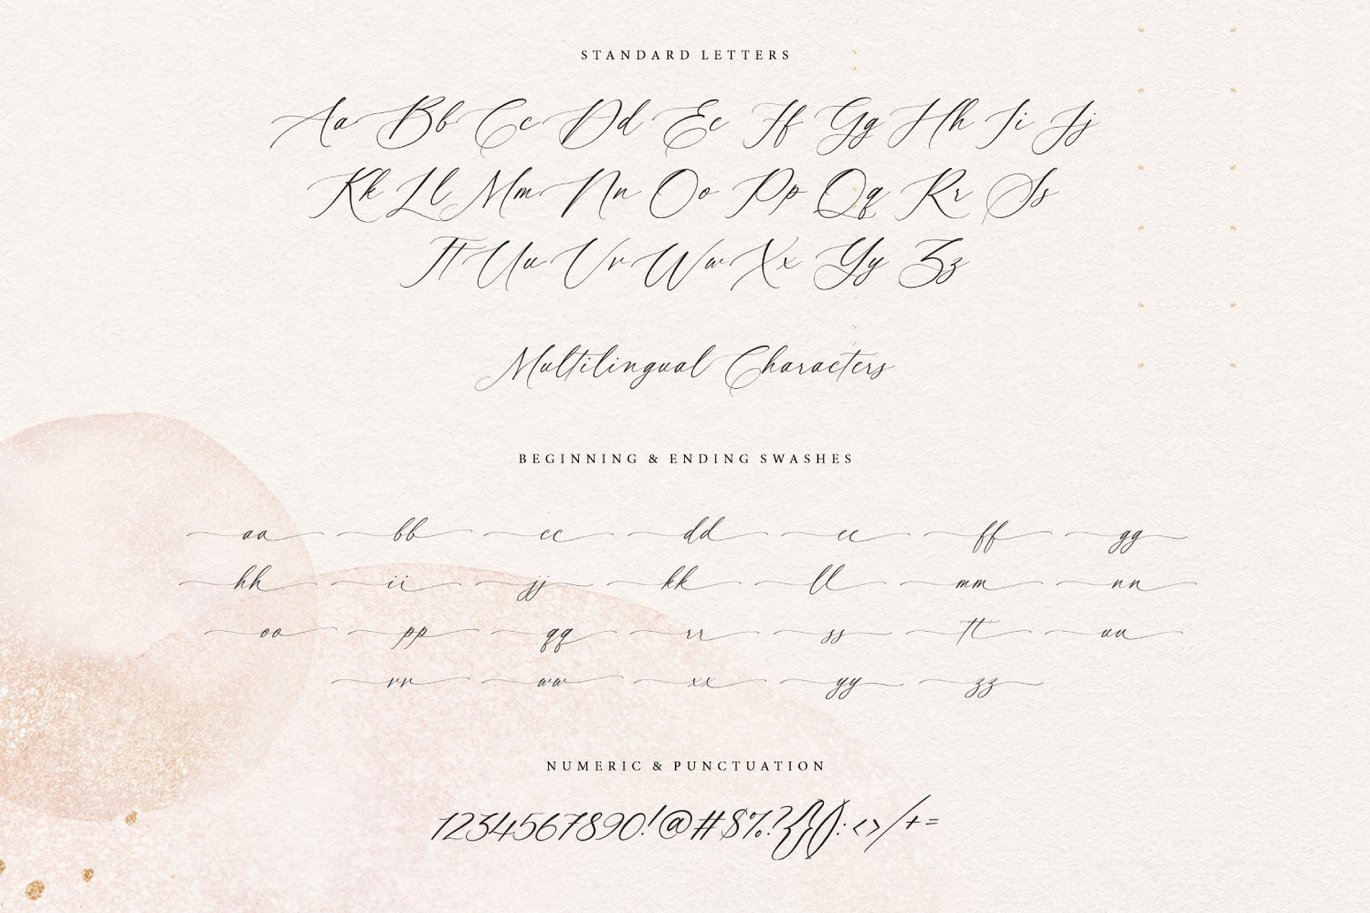 STANDARD LETTERS
Aa Bb Cc Dd Ee Ff Gg Hh Ii Jj
Kk Ll Mm Nn Oo Pp Qq Rr Ss
Tt Uu Vv Ww Xx Yy Zz
Multilingual Characters
BEGINNING & ENDING SWASHES
aa bb cc dd ee ff gg
hh ii jj kk ll mm nn
oo pp qq rr ss tt uu
vv ww xx yy zz
NUMERIC & PUNCTUATION
1234567890!@#$%?{}():<>/+=